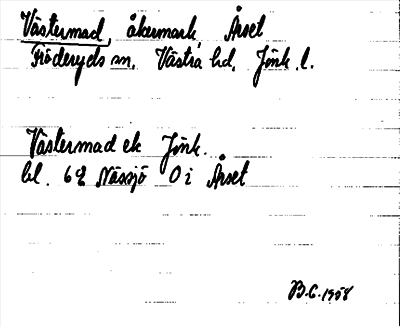 Västermad, åkermark, Årset
Fröderyds sn. Västra hd. Jönk. l.
Västermad ek Jönk.
bl. 69 Nässjö 0 i Årset
B.G. 1958